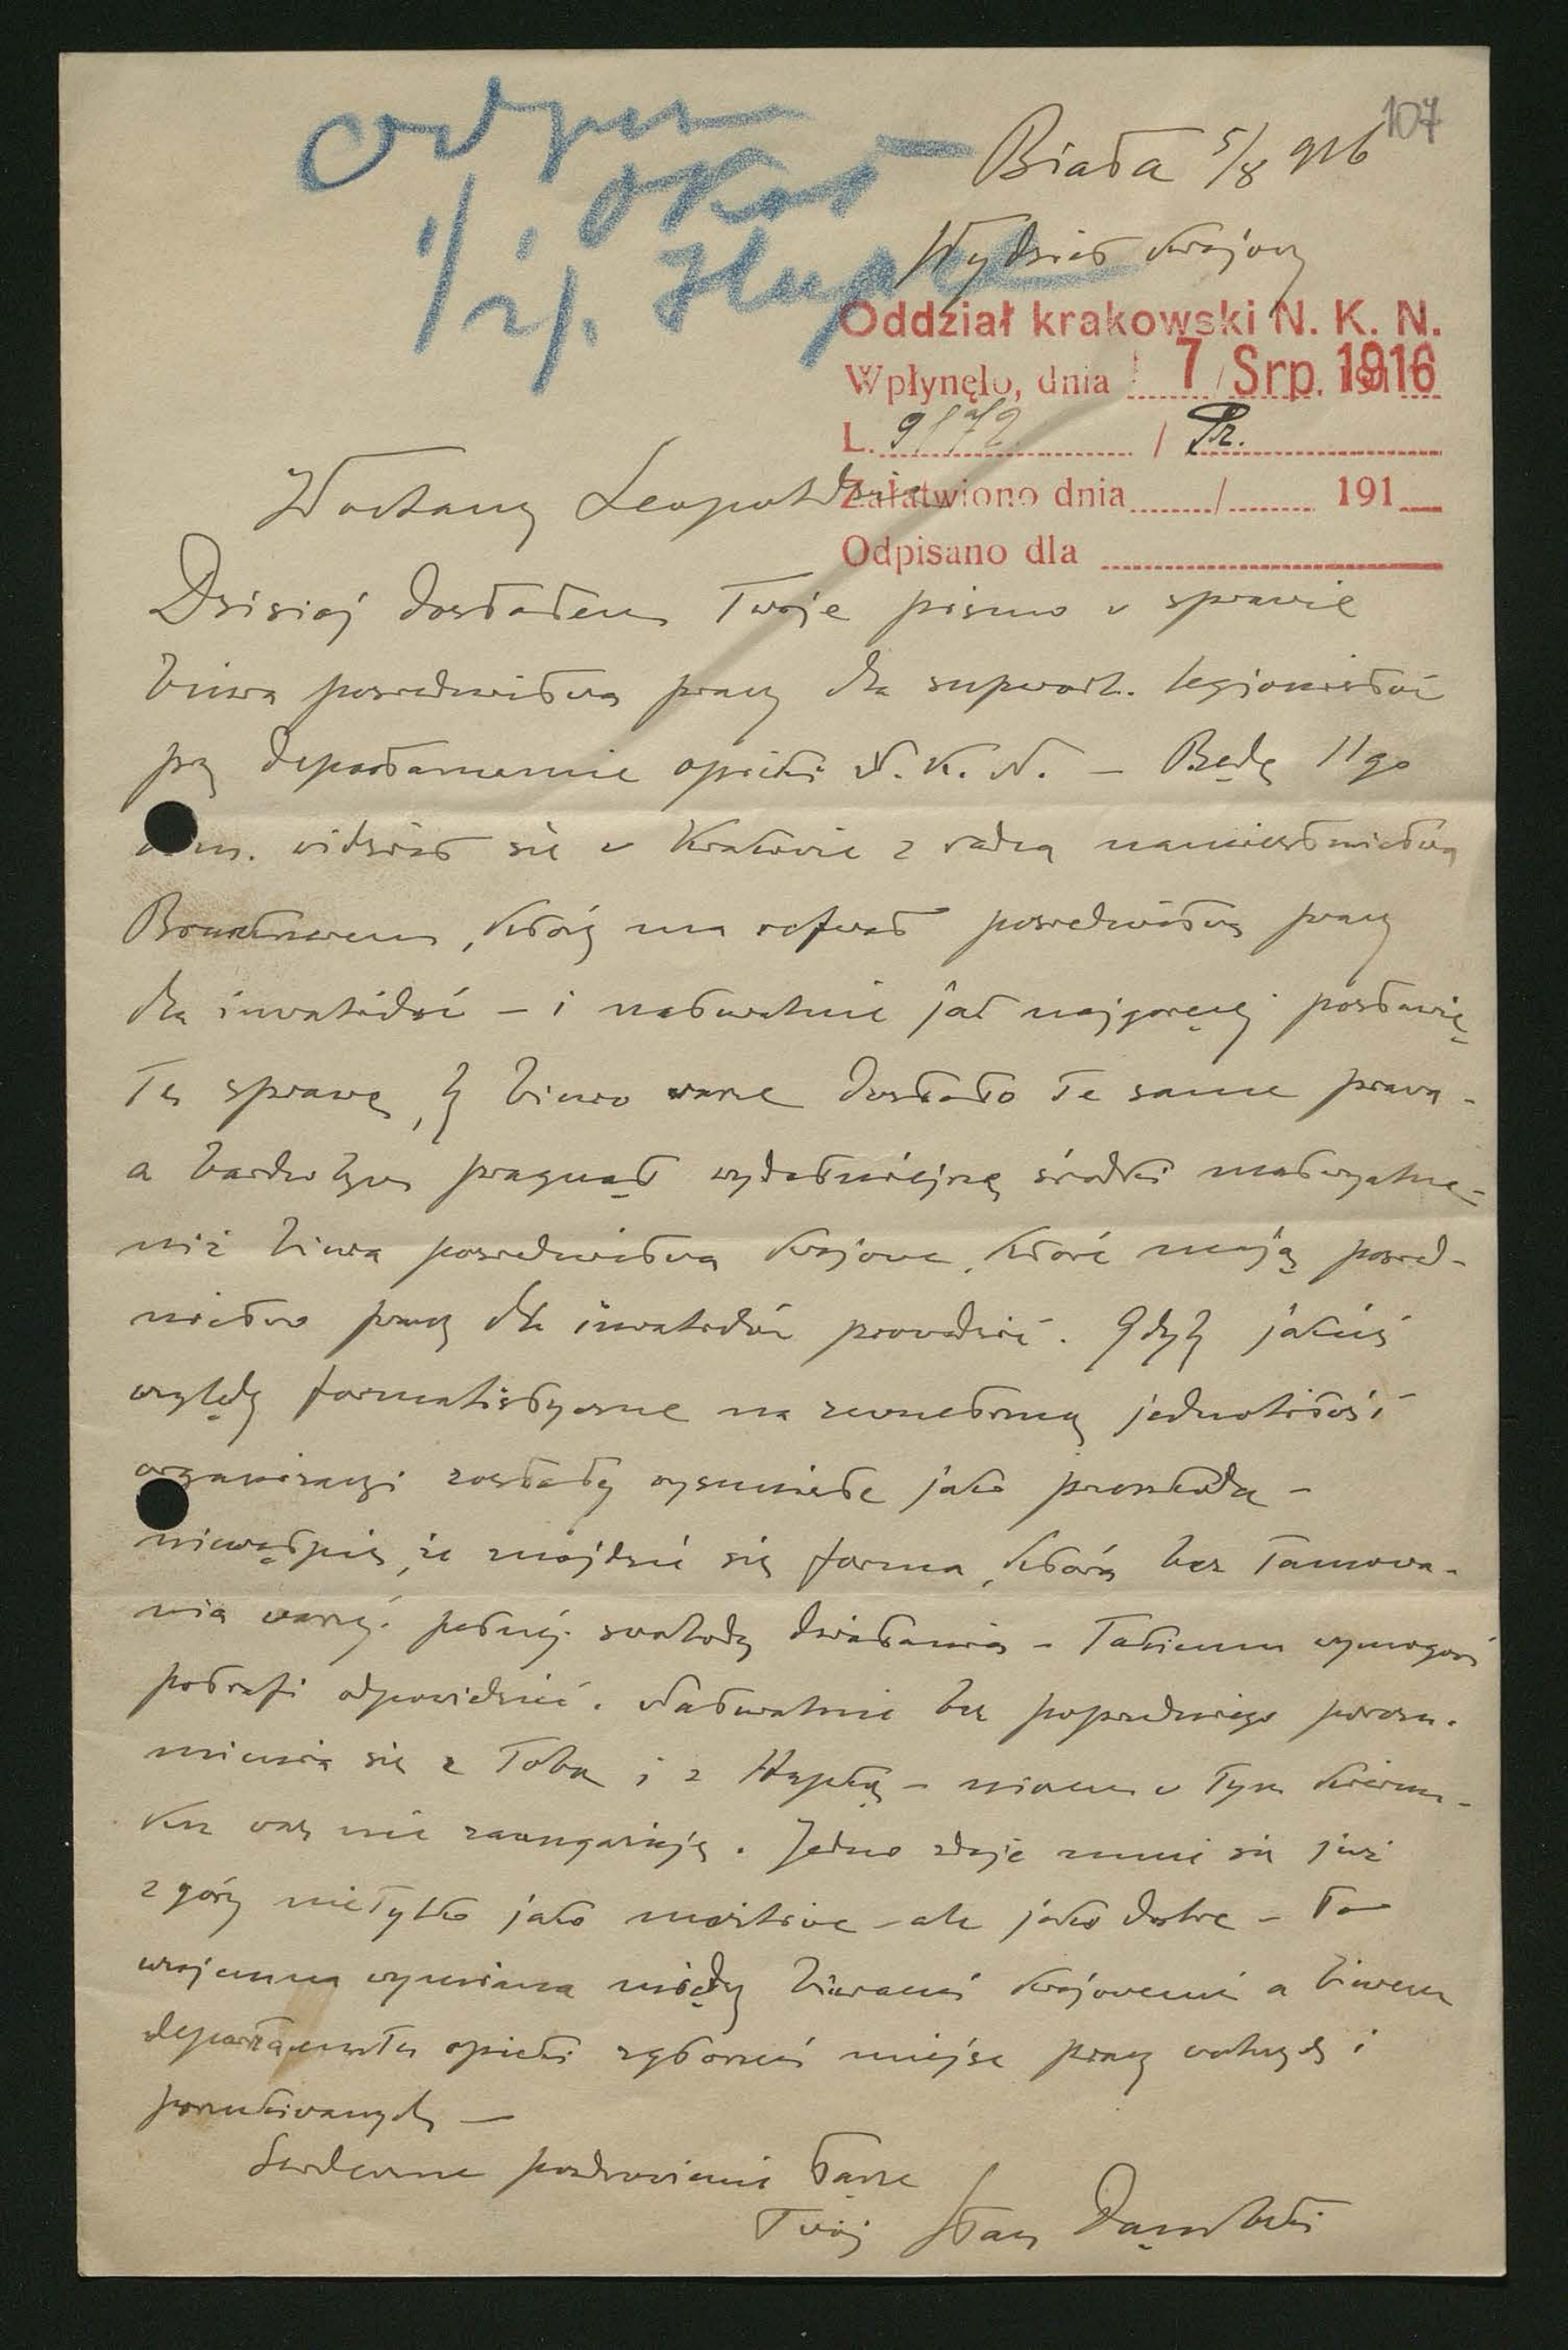 107
Biała 5/8 916
Wydział krajowy
Oddział krakowski N. K. N.
Wpłynęło, dnia 7 Srp. 1916
L. / Pr.
Załatwiono dnia / 191
Odpisano dla
Kochany Leopoldzie
Dzisiaj dostałem Twoje pismo w sprawie
biura pośrednictwa pracy dla legionistów
przy departamencie opieki N. K. N. – Będę 11go
b.m. widział się w Krakowie z radcą namiestnictwa
, który ma referat pośrednictwa pracy
dla inwalidów – i naturalnie jak najgoręcej postawię
tę sprawę, by biuro wasze dostało te same prawa –
a bardzo bym pragnął wydatniejsze środki materyalne –
niż biura pośrednictwa krajowe, które mają pośred-
nictwo pracy dla inwalidów prowadzić. Gdyby jakieś
względy formalistyczne na zewnętrzną jednolitość
organizacyi zostały wysunięte jako przeszkoda –
niewątpię, że znajdzie się forma, która bez tamowa-
nia waszej pełnej swobody działania – takiemu wymogowi
potrafi odpowiedzieć. Naturalnie bez poprzedniego porozu-
mienia się z Tobą i z Hupką – niczem w tym kierun-
ku was nie zaangażuję. Jedno zdaje mnie się już
z góry nietylko jako możliwe – ale jako dobre – to
wzajemna wymiana między biurami krajowemi a biurem
departamentu opieki zgłoszeń miejsc pracy wolnych i
poszukiwanych –
Serdeczne pozdrowienia łączę
Twój Stan Dąmbski